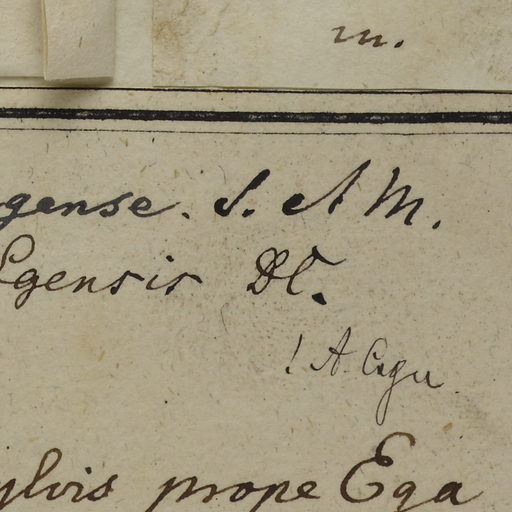 m.
gense. S. et M.
Egensis DC.
! A. Cogn
ylvis prope Ega